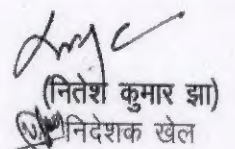 (नितेश कुमार झा)
निदेशक खेल